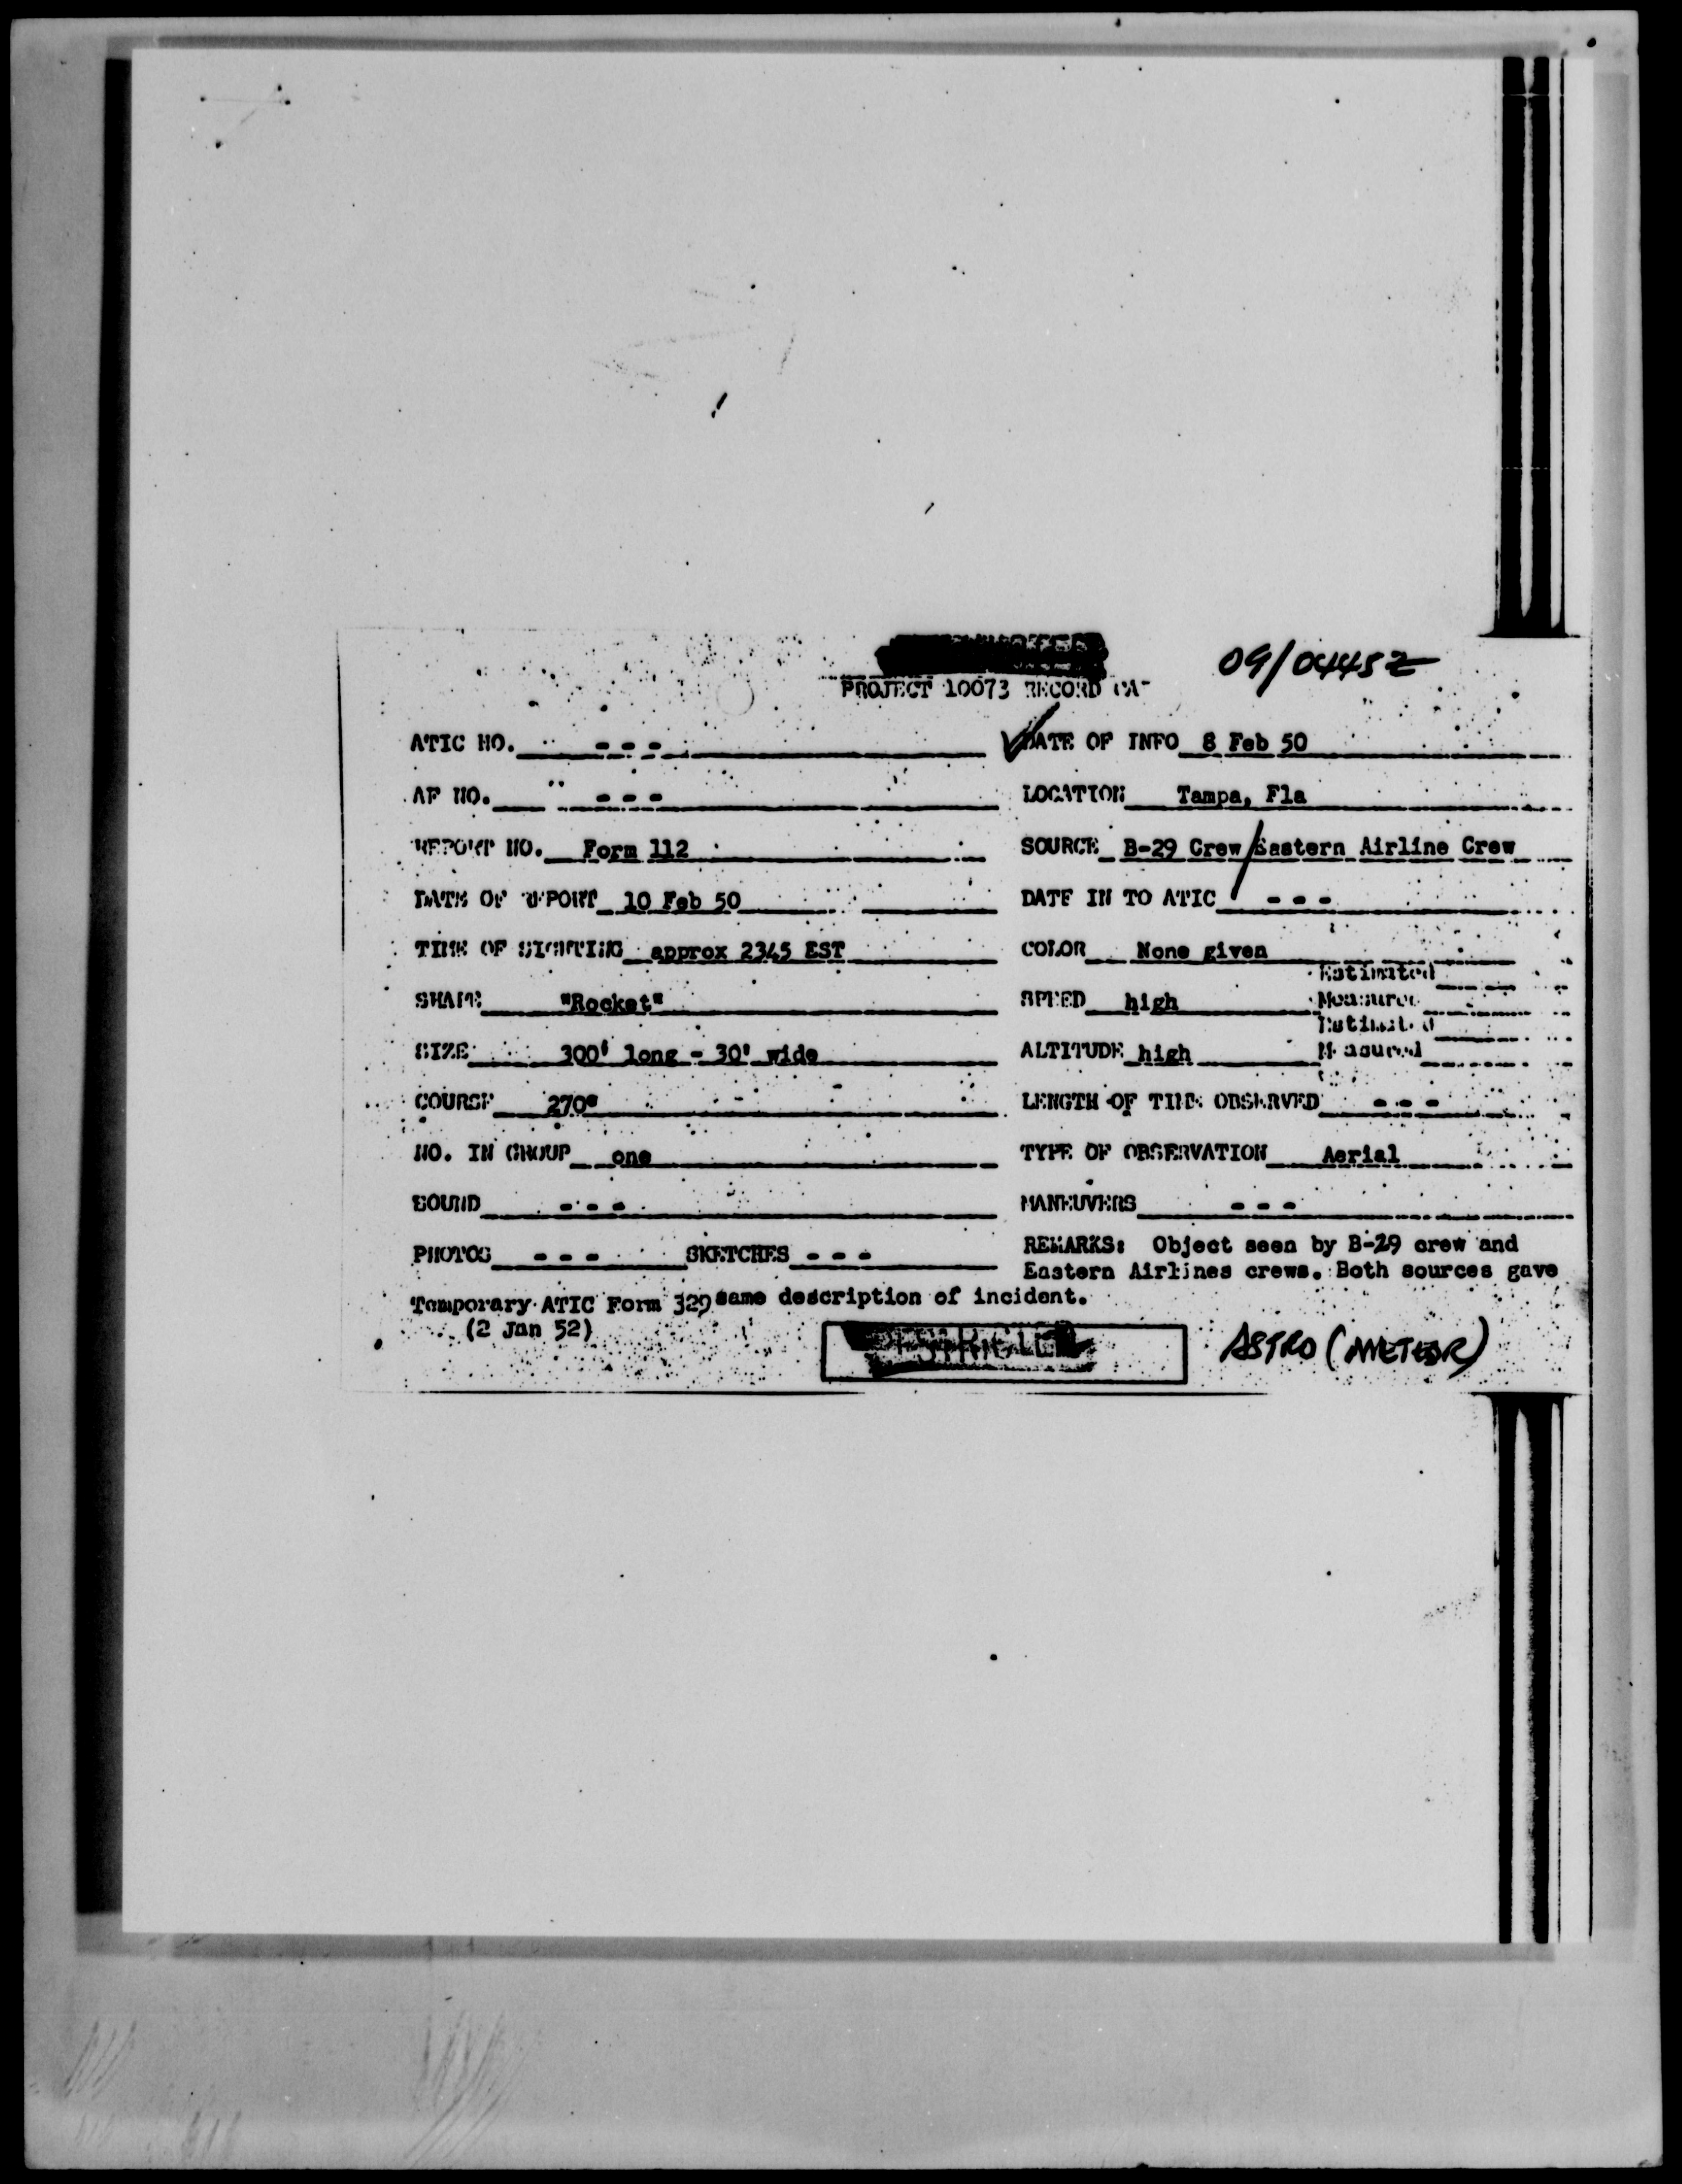 09/0445Z
PROJECT 10073 RECORD CA
ATIC NO. - - - DATE OF INFO 8 Feb 50
AF NO. - - - LOCATION Tampa, Fla
REPORT NO. Form 112 SOURCE B-29 Crew/Eastern Airline Crew
DATE OF REPORT 10 Feb 50 DATE IN TO ATIC - - -
TIME OF SIGHTING approx 2345 EST COLOR None given
Estimated
SHAPE "Rocket" SPEED high Measured
Estimated
SIZE 300' long - 30' wide ALTITUDE high Measured
COURSE 270° LENGTH OF TIME OBSERVED - - -
NO. IN GROUP one TYPE OF OBSERVATION Aerial
SOUND - - - MANEUVERS - - -
PHOTOS - - - SKETCHES - - - REMARKS: Object seen by B-29 crew and
Eastern Airlines crews. Both sources gave
Temporary ATIC Form 329 same description of incident.
(2 Jan 52)
ASTRO (METEOR)